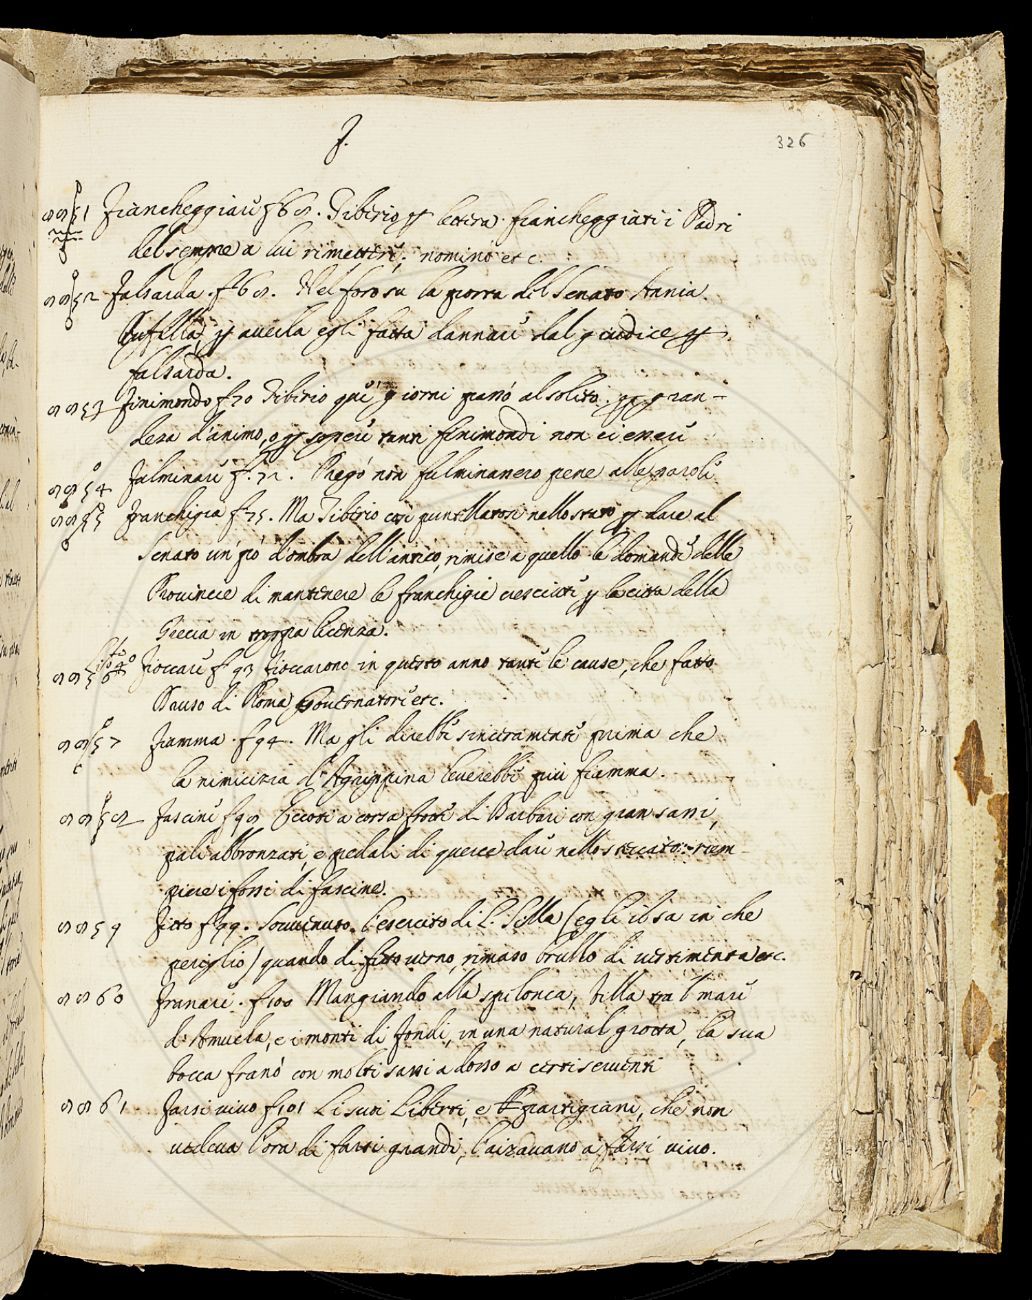 F.
326
8851 Fiancheggiare f 68. Tiberio p lettera fiancheggiati i Padri
del sempre a lui rimettere, nominò etc.
8852 Falsarda. f. 68. Nel foro su la porta del Senato Annia
Rufilla, p averla egli fatta dannare dal giudice p
falsarda.
8853 Finimondo f 70 Tiberio que' giorni passò al solito. p gran-
deza d'animo, o p sapere tanti finimondi non ci essere
8854 Fulminare f. 72. Pregò non fulminassero pene alle parole
8855 Franchigia f. 75. Ma Tiberio così puntellatosi nello stato p dare al
Senato un pò d'ombra dell'antico, rimise a quello le domande delle
Provincie di mantenere le franchigie cresciute p le città della
Grecia in troppa licenza.
8856 Fioccare f. 93 fioccarono in questo anno tante le cause, che fatto
Druso di Roma Governatore etc.
8857 Fiamma. f 94. Ma gli direbbe sinceramente prima che
la nimicizia d'Agrippina leverebbe più fiamma.
8858 Fascine f 98 Eccoti a corsa frotte di Barbari con gran sassi,
pali abbronzati, e pedali di querce dare nello steccato: riem-
piere i fossi di fascine.
8859 Fitto f 99. Sovvenuto l'esercito di L. Silla (egli il sa in che
periglio) quando di fitto verno, rimaso brullo di vestimenta etc.
8860 Franare. f 100 Mangiando alla spilonca, Villa tra l mare
d'Amucla, e i monti di Fondi, in una natural grotta, la sua
bocca franò con molti sassi a dosso a certi serventi
8861 Farsi vivo f 101 Li suoi Liberti, e Partigiani, che non
vedeva l'ora di farsi grandi, l'aizavano a farsi vivo.